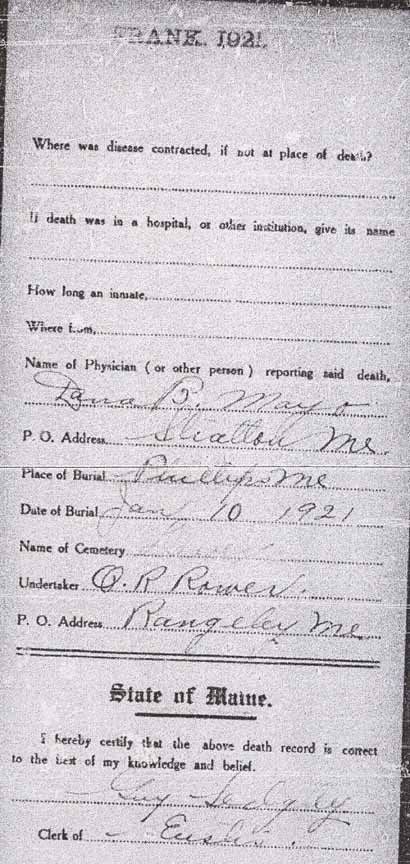 1921.
Where was disease contracted, if not at place of death?
If death was in a hospital, or other institution, give its name
How long an inmate,
Where from,
Name of Physician (or other person) reporting said death,
Dana B. Mayo
P. O. Address Stratton Me.
Place of Burial Phillips Me
Date of Burial Jany 10 1921
Name of Cemetery
Undertaker O. R. Rowe
P. O. Address Rangeley Me
State of Maine.
I hereby certify that the above death record is correct
to the best of my knowledge and belief.
Guy Sedgley
Clerk of Eustis.